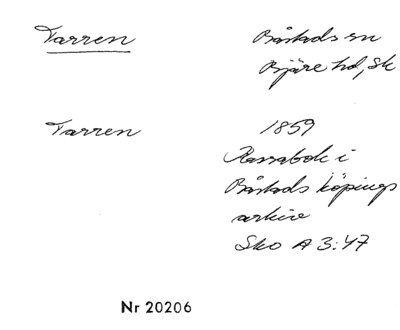 Tarren
Båstads sn
Bjäre hd, Sk
Tarren
1859
Kassabok i
Båstads köpings
arkiv
Sko A 3:47
Nr 20206